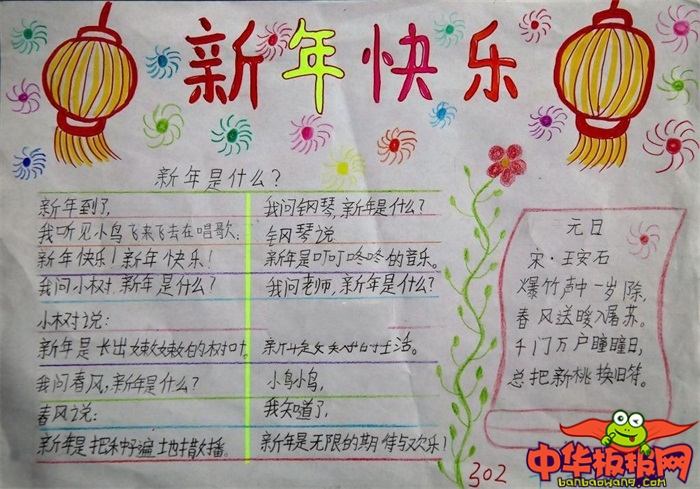 新年快乐
新年是什么?
新年到了,
我听见小鸟飞来飞去在唱歌:
新年快乐!新年快乐!
我问小树,新年是什么?
小树说:
新年是长出嫩嫩的树叶.
我问春风,新年是什么?
春风说:
新年是把 遍地散播.
我问钢琴,新年是什么?
钢琴说
新年是叮叮咚咚的音乐。
我问老师,新年是什么?
新年是 的生活。
小鸟小鸟,
我知道了,
新年是无限的期待与欢乐!
元日
宋·王安石
爆竹声中一岁除,
春风送暖入屠苏。
千门万户瞳瞳日,
总把新桃换旧符。
302
中华板报网
banbaowang.com